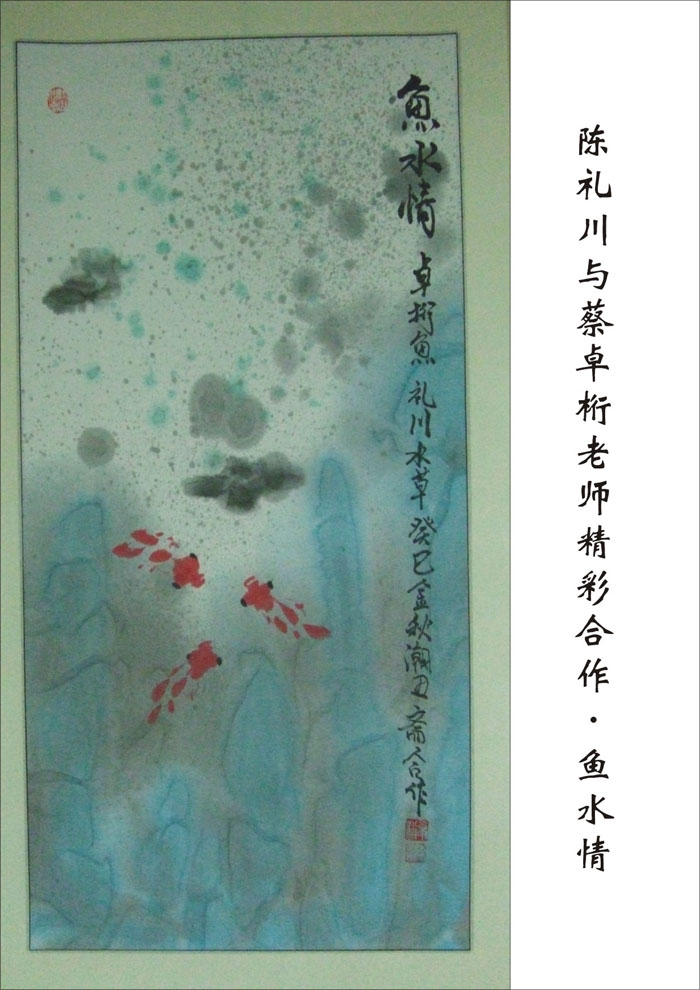 陈礼川与蔡卓桁老师精彩合作·鱼水情
魚水情
卓桁魚 礼川水草 癸巳金秋潮 斋合作